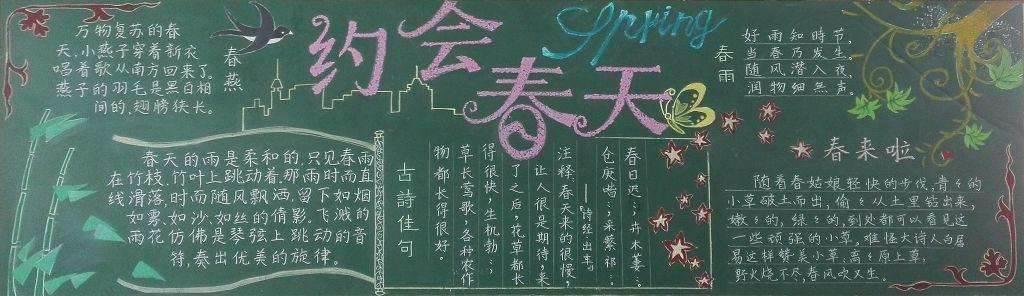 约会
春天
Spring
春燕
万物复苏的春
天,小燕子穿着新衣
唱着歌从南方回来了。
燕子的羽毛是黑白相
间的,翅膀狭长。
春天的雨是柔和的,只见春雨
在竹枝、竹叶上跳动着,那雨时而直
线滑落,时而随风飘洒,留下如烟
如雾、如沙、如丝的倩影,飞溅的
雨花仿佛是琴弦上跳动的音
符,奏出优美的旋律。
古诗佳句
春日迟々,卉木萋々
仓庚喈々,采蘩祁々
——诗经出车。
注释:春天来的很慢,
让人很是期待,来
了之后,花草都长
得很快,生机勃々,
草长莺歌,各种农作
物都长得很好。
春雨
好雨知時节,
当春乃发生。
随风潜入夜,
润物细无声。
春来啦
随着春姑娘轻快的步伐,青々的
小草破土而出,偷々从土里钻出来,
嫩々的,绿々的,到处都可以看见这
一些顽强的小草,难怪大诗人白居
易这样赞美小草:离々原上草,
野火烧不尽,春风吹又生。